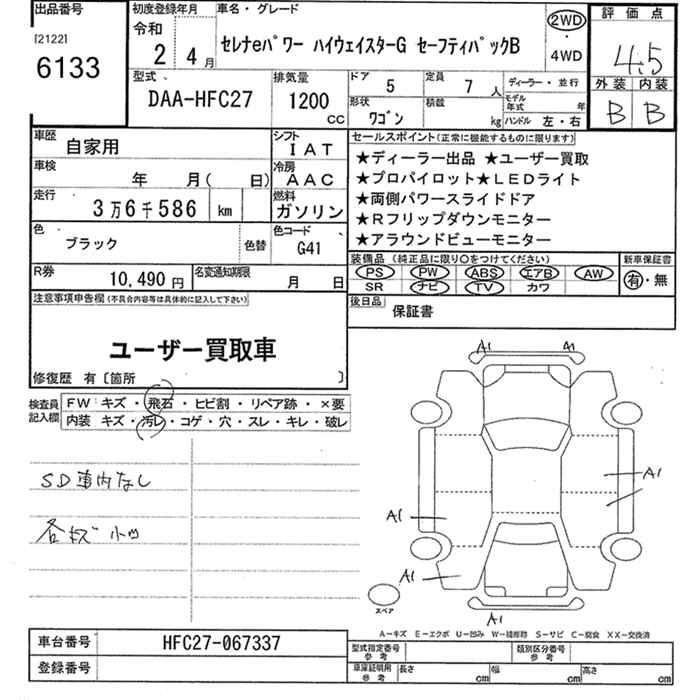 出品番号
[2122]
6133
初度登録年月
令和
2 4月
車名・グレード
セレナeパワー ハイウェイスターG セーフティパックB
2WD
・
4WD
評価点
4.5
外装 内装
B B
型式
DAA-HFC27
排気量
1200
CC
ドア 5
定員 7 人
ディーラー・並行
形状 ワゴン
積載 kg
モデル年式 年
ハンドル 左・右
車歴 自家用
シフト IAT
車検 年 月( 日)
冷房 AAC
走行 3万6千586 km
燃料 ガソリン
色 ブラック
色替
色コード G41
R券 10,490円
名変通知期限 月 日
セールスポイント(正常に機能するものに限ります)
★ディーラー出品 ★ユーザー買取
★プロパイロット★LEDライト
★両側パワースライドドア
★Rフリップダウンモニター
★アラウンドビューモニター
装備品 (純正品に限り○をつけてください)
新車保証書
PS PW ABS エアB AW
SR ナビ TV カワ
有・無
後日品 保証書
注意事項申告欄(不具合内容等は具体的に記入して下さい)
ユーザー買取車
修復歴 有〔箇所 〕
検査員記入欄
FW キズ・飛石・ヒビ割・リペア跡・×要
内装 キズ・汚レ・コゲ・穴・スレ・キレ・破レ
SD車内なし
各キズ小凹
A1 A1
A1
A1
A1
A1
スペア
A-キズ E-エクボ U-凹み W-補修跡 S-サビ C-腐食 XX-交換済
車台番号 HFC27-067337
登録番号
型式指定番号 参考
類別区分番号 参考
車庫証明用 参考
長さ cm 幅 cm 高さ cm